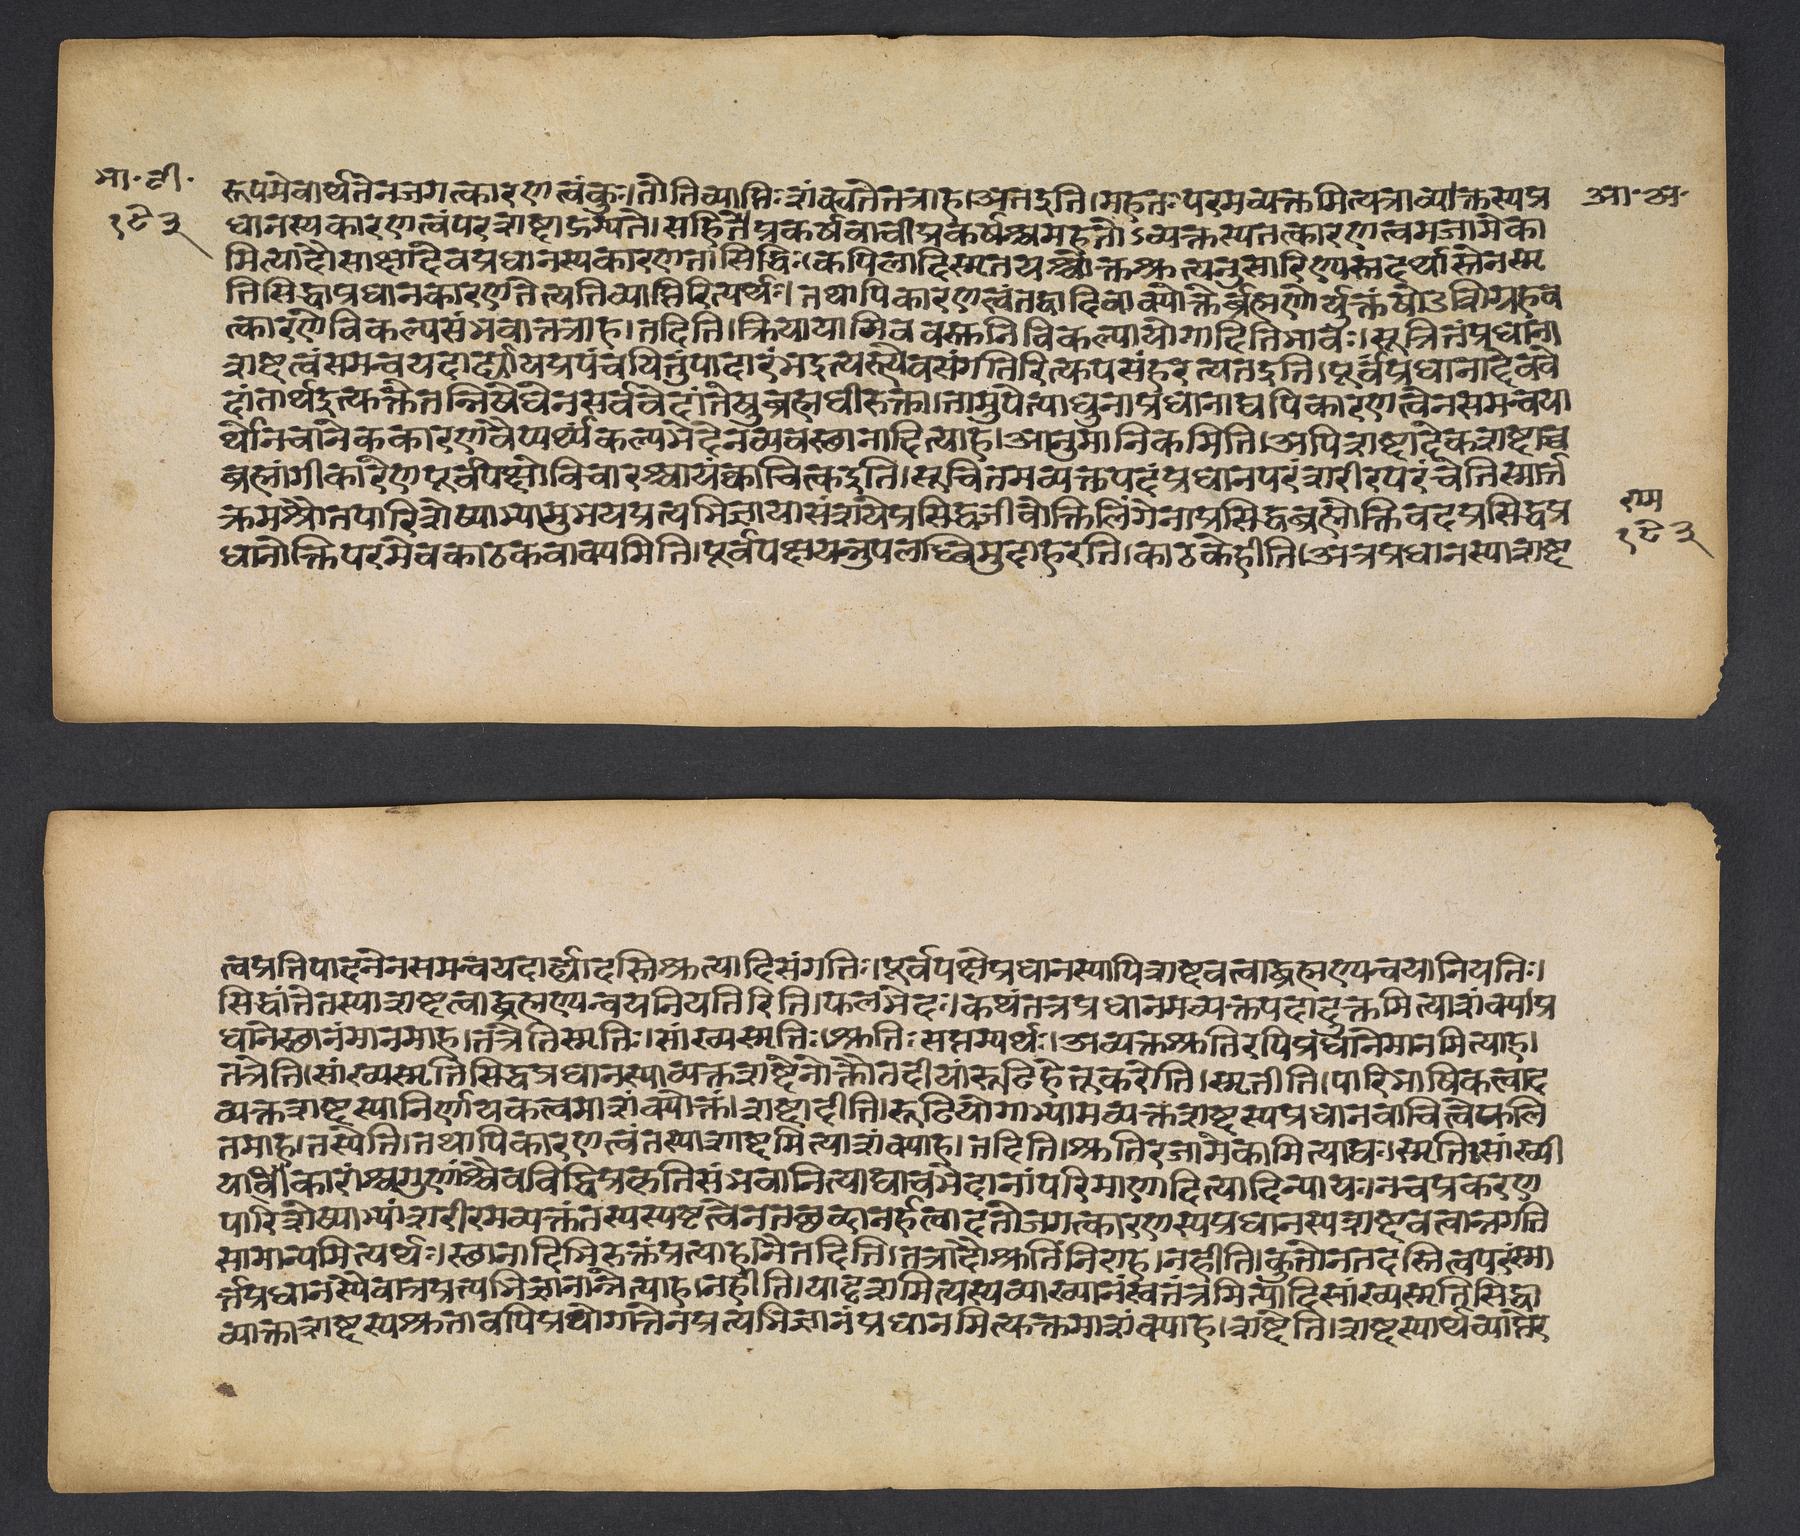 भा॰ टी॰
१९३
आ॰ अ॰
रूपमेवार्थतेनजगत्कारणत्वंकुतोतिव्याप्तिःशंक्यतेतत्राह।अतइति।महतःपरमव्यक्तमित्यत्राव्यक्तस्यप्र
धानस्यकारणत्वंपरशब्दाद्गम्यते।सहितत्रप्रकर्षवाचीप्रकर्षश्चमहतोऽव्यक्तस्यतत्कारणत्वमजामेका
मित्यादौसाक्षादेवप्रधानस्यकारणतासिद्धिः।कपिलादिस्मृतयश्चोक्तश्रुत्यनुसारिण्यस्तदर्थास्तेनस्मृ
तिसिद्धाप्रधानकारणतेत्यतिव्याप्तिरित्यर्थः।तथापिकारणत्वंतद्वादिवाक्योक्तेर्ब्रह्मणोर्युक्तंषोडशिग्रहव
त्कारणेविकल्पसंभवात्तत्राह।तदिति।क्रियायामिववस्तुनिविकल्पायोगादितिभावः।सूत्रितंप्रधाना
शब्दत्वंसमन्वयदार्ढ्यायप्रपंचयितुंपादारंभइत्यस्यैवसंगतिरित्युपसंहरत्यतइति।पूर्वंप्रधानादेर्वे
दांतार्थइत्युक्तेतन्निषेधेनसर्ववेदांतेषुब्रह्मधीरुक्ता।तामुपेत्याधुनाप्रधानाद्यपिकारणत्वेनसमन्वया
र्थेनिचानेककारणवैप्यर्थ्यंकल्पभेदेनव्यवस्थानादित्याह।आनुमानिकमिति।अपिशब्दादेकशब्दाच्च
ब्रह्मांगीकारेणपूर्वपक्षोविचारश्चायंक्वाचित्कइति।सूचितमव्यक्तपदंप्रधानपरंशरीरपरंचेतिस्मार्त्त
क्रमश्रौतपारिशेष्याभ्यामुभयप्रत्यभिज्ञायासंशयेप्रसिद्धजीवोक्तिलिंगेनाप्रसिद्धब्रह्मोक्तिवदप्रसिद्धप्र
धानोक्तिपरमेवकाठकवाक्यमिति।पूर्वपक्षयन्नुपलब्धिमुदाहरति।काठकेहीति।अत्रप्रधानस्याशब्द
राम
१९३
त्वप्रतिपादनेनसमन्वयदार्ढ्यादस्तिश्रुत्यादिसंगतिः।पूर्वपक्षेप्रधानस्यापिशब्दवत्वाद्ब्रह्मण्यन्वयानियतिः।
सिद्धांतेतस्याशब्दत्वाद्ब्रह्मण्यन्वयनियतिरिति।फलभेदः।कथंतत्रप्रधानमव्यक्तपदादुक्तमित्याशंक्यप्र
धानेस्थानंमानमाह।तत्रेतिस्मृतिः।सांख्यस्मृतिः।श्रुतिःसप्तम्यर्थः।अव्यक्तश्रुतिरपिप्रधानेमानमित्याह।
तत्रेति।सांख्यस्मृतिसिद्धप्रधानस्याव्यक्तशब्देनोक्तौतदीयांरूढिंहेतूकरोति।स्मृतीति।पारिभाषिकत्वाद
व्यक्तशब्दस्यानिर्णायकत्वमाशंक्योक्तं।शब्दादीति।रूढियोगाभ्यामव्यक्तशब्दस्यप्रधानवाचित्वेफलि
तमाह।तस्येति।तथापिकारणत्वंतस्याशाब्दमित्याशंक्याह।तदिति।श्रुतिरजामेकामित्याद्यः।स्मृतिःसांख्यी
याविकारांश्चगुणांश्चैवविद्धिप्रकृतिसंभवानित्याद्याचभेदानांपरिमाणादित्यादिन्यायः।नचप्रकरण
पारिशेष्याभ्यांशरीरमव्यक्तंतस्यस्पष्टत्वेनतच्छब्दानर्हत्वादतोजगत्कारणस्यप्रधानस्यशब्दवत्वान्नगति
सामान्यमित्यर्थः।स्थानादिभिरुक्तंप्रत्याह।नैतदिति।तत्रादौश्रुतिंनिराह।नहीति।कुतोनतदस्तित्वपरंस्मा
र्त्तप्रधानस्येवात्रप्रत्यभिज्ञानान्नेत्याह।नहीति।यादृशमित्यस्यव्याख्यानंस्वतंत्रमित्यादिसांख्यस्मृतिसिद्धा
व्यक्ताशब्दस्यश्रुतावपिप्रयोगात्तेनप्रत्यभिज्ञानंप्रधानमित्युक्तमाशंक्याह।शब्देति।शब्दस्यार्थव्याप्तेर